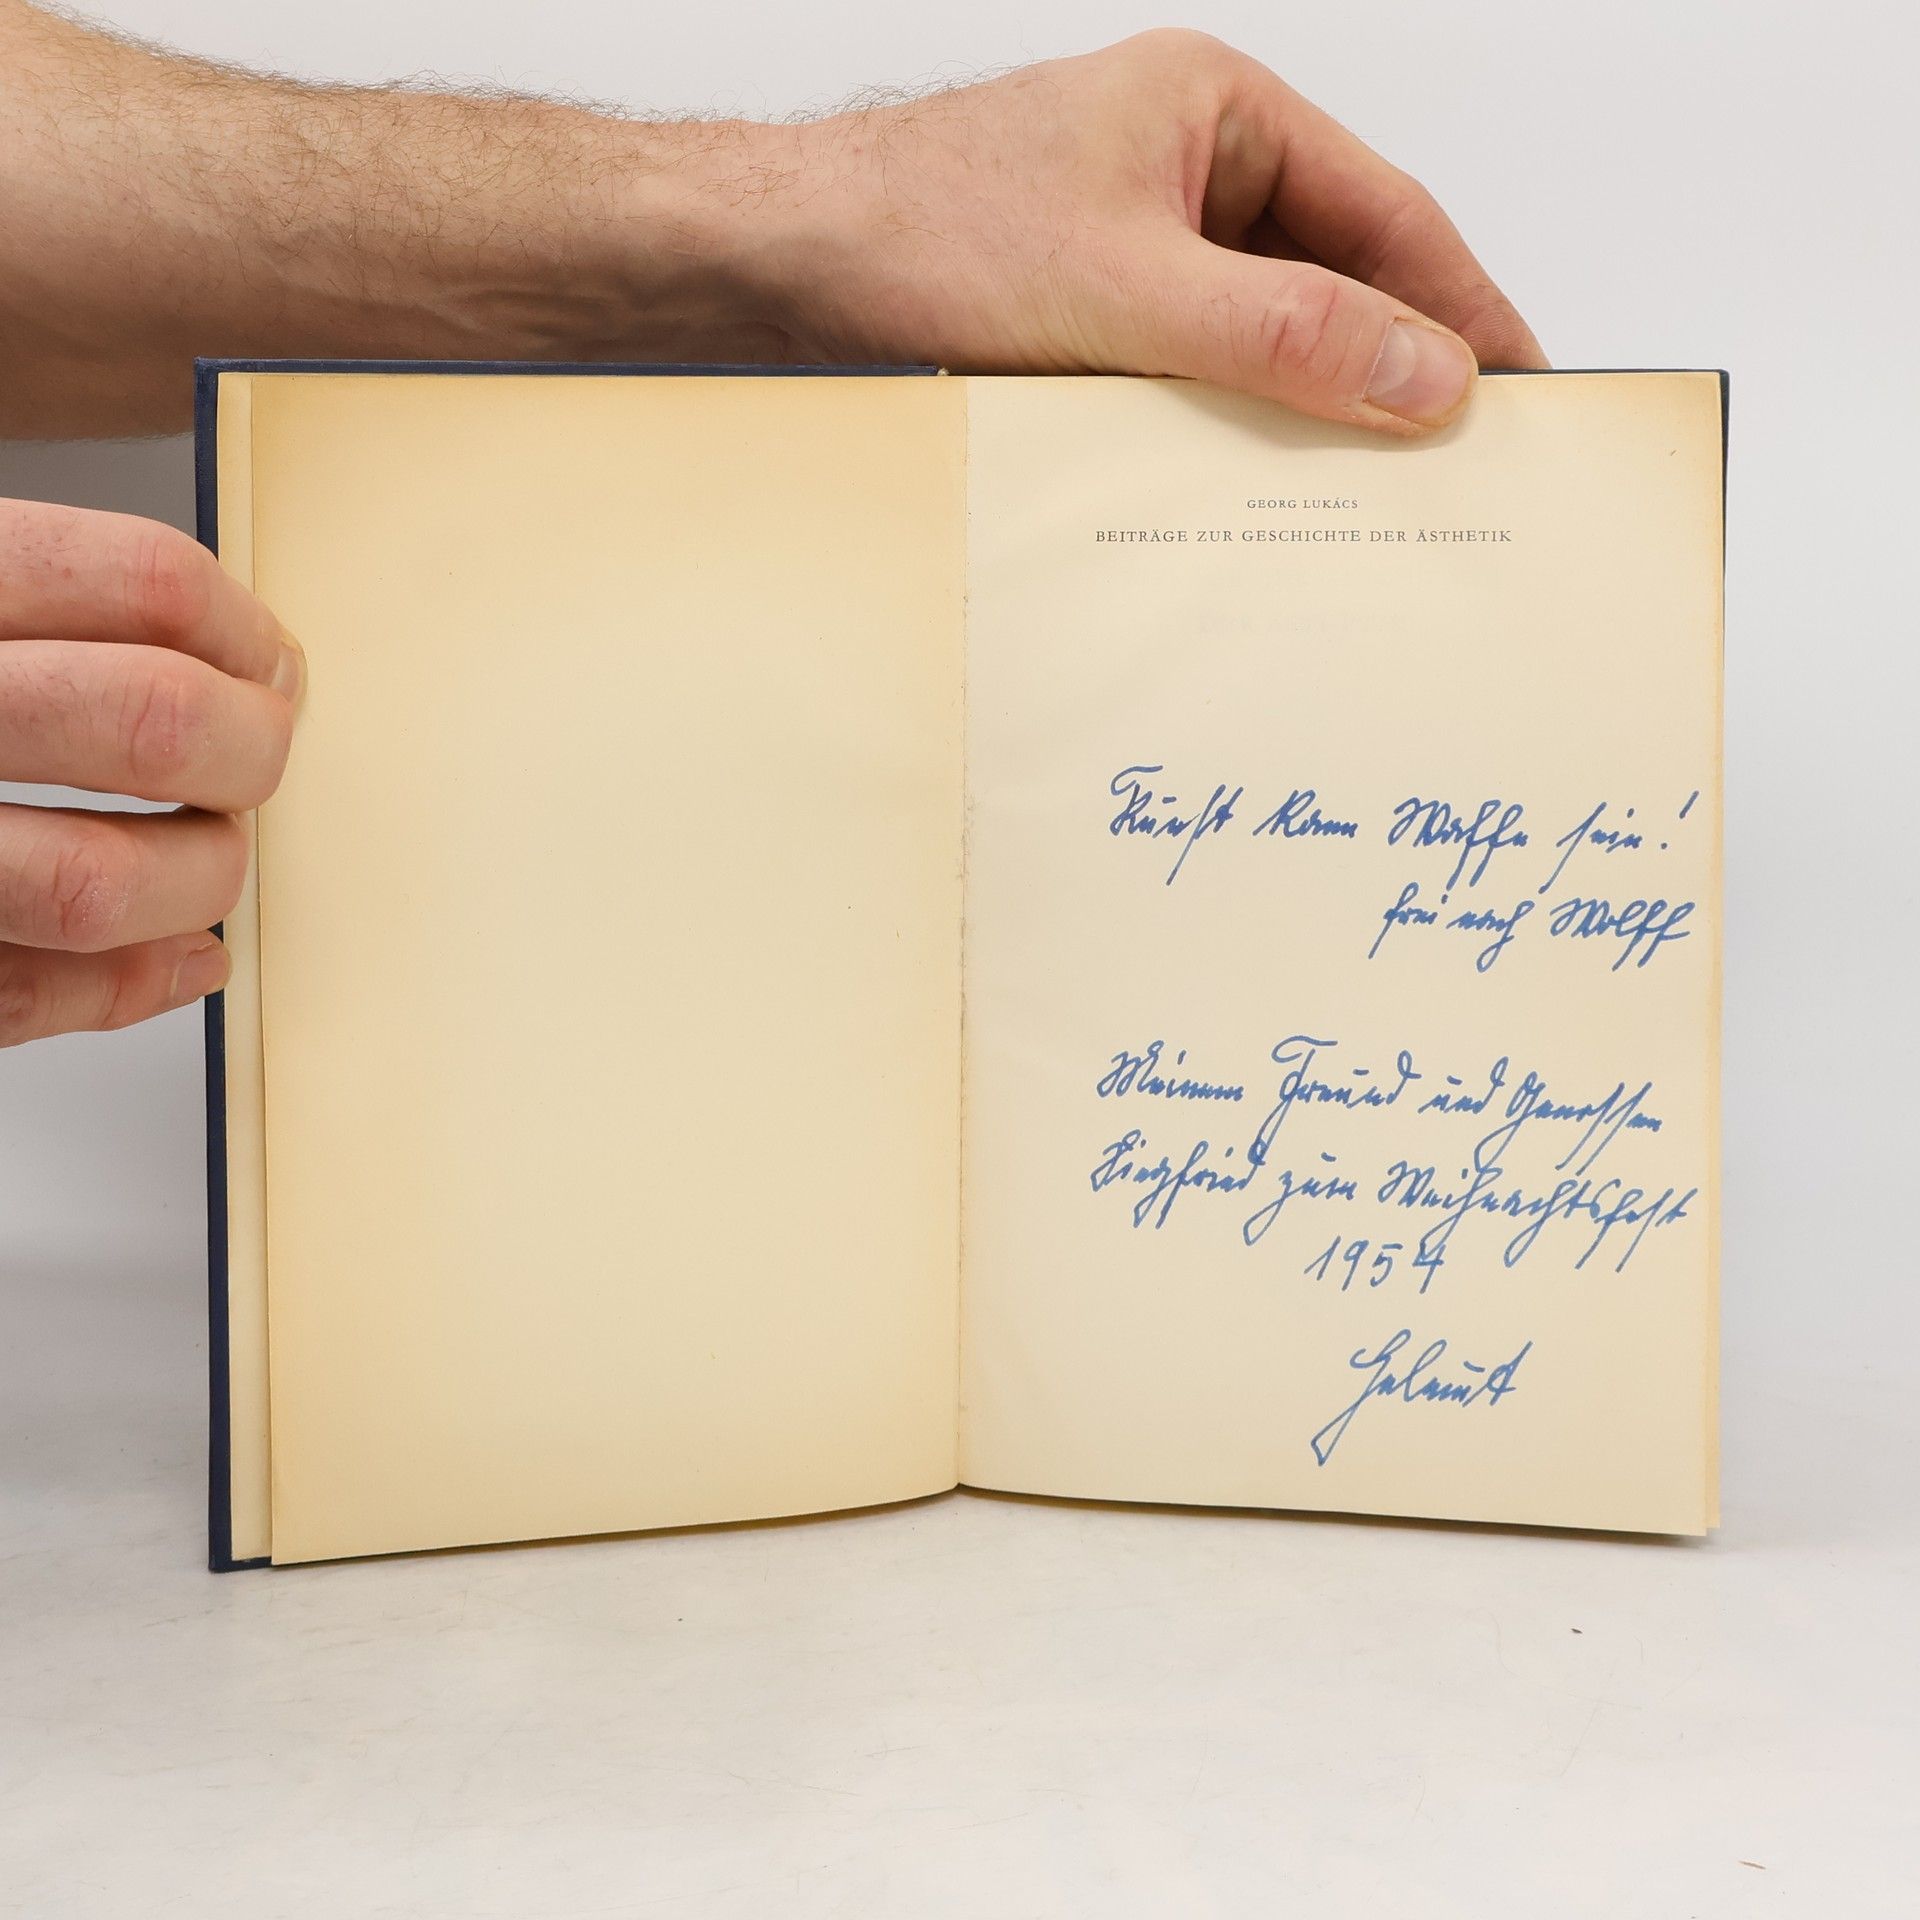 GEORG LUKÁCS
BEITRÄGE ZUR GESCHICHTE DER ÄSTHETIK
Kunst kann Waffe sein!
frei nach Wolff
Meinem Freund und Genossen
Siegfried zum Weihnachtsfest
1954
Helmut